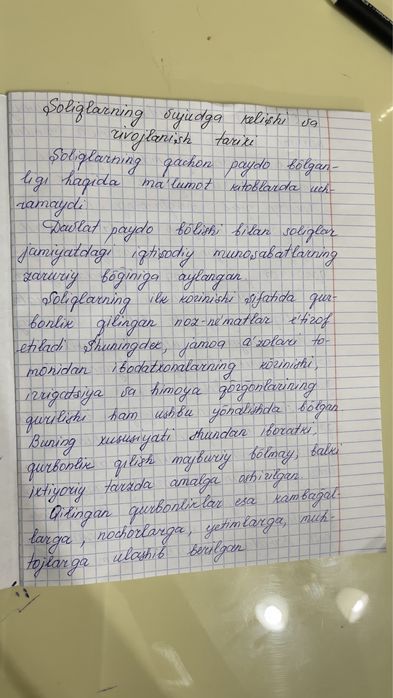 Soliqlarning vujudga kelishi va
rivojlanish tarixi
Soliqlarning qachon paydo bölgan-
ligi haqida ma'lumot kitoblarda uch-
ramaydi
Davlat paydo bölishi bilan soliqlar
jamiyatdagi iqtisodiy munosabatlarning
zaruriy böginiga aylangan
Soliqlarning ilk körinishi sifatida qur-
bonlik qilingan noz-ne'matlar e'tirof
etiladi Shuningdek, jamoa a'zolari to-
monidan ibodatxonalarning körinishi,
irrigatsiya va himoya qörgonlarining
qurilishi ham ushbu yönalishda bölgan
Buning xususiyati shundan iboratki,
qurbonlik qilish majburiy bölmay, balki
ixtiyoriy tarzda amalga oshirilgan
Qilingan qurbonliklar esa kambağal-
larga, nochorlarga, yetimlarga, muh-
tojlarga ulashib berilgan